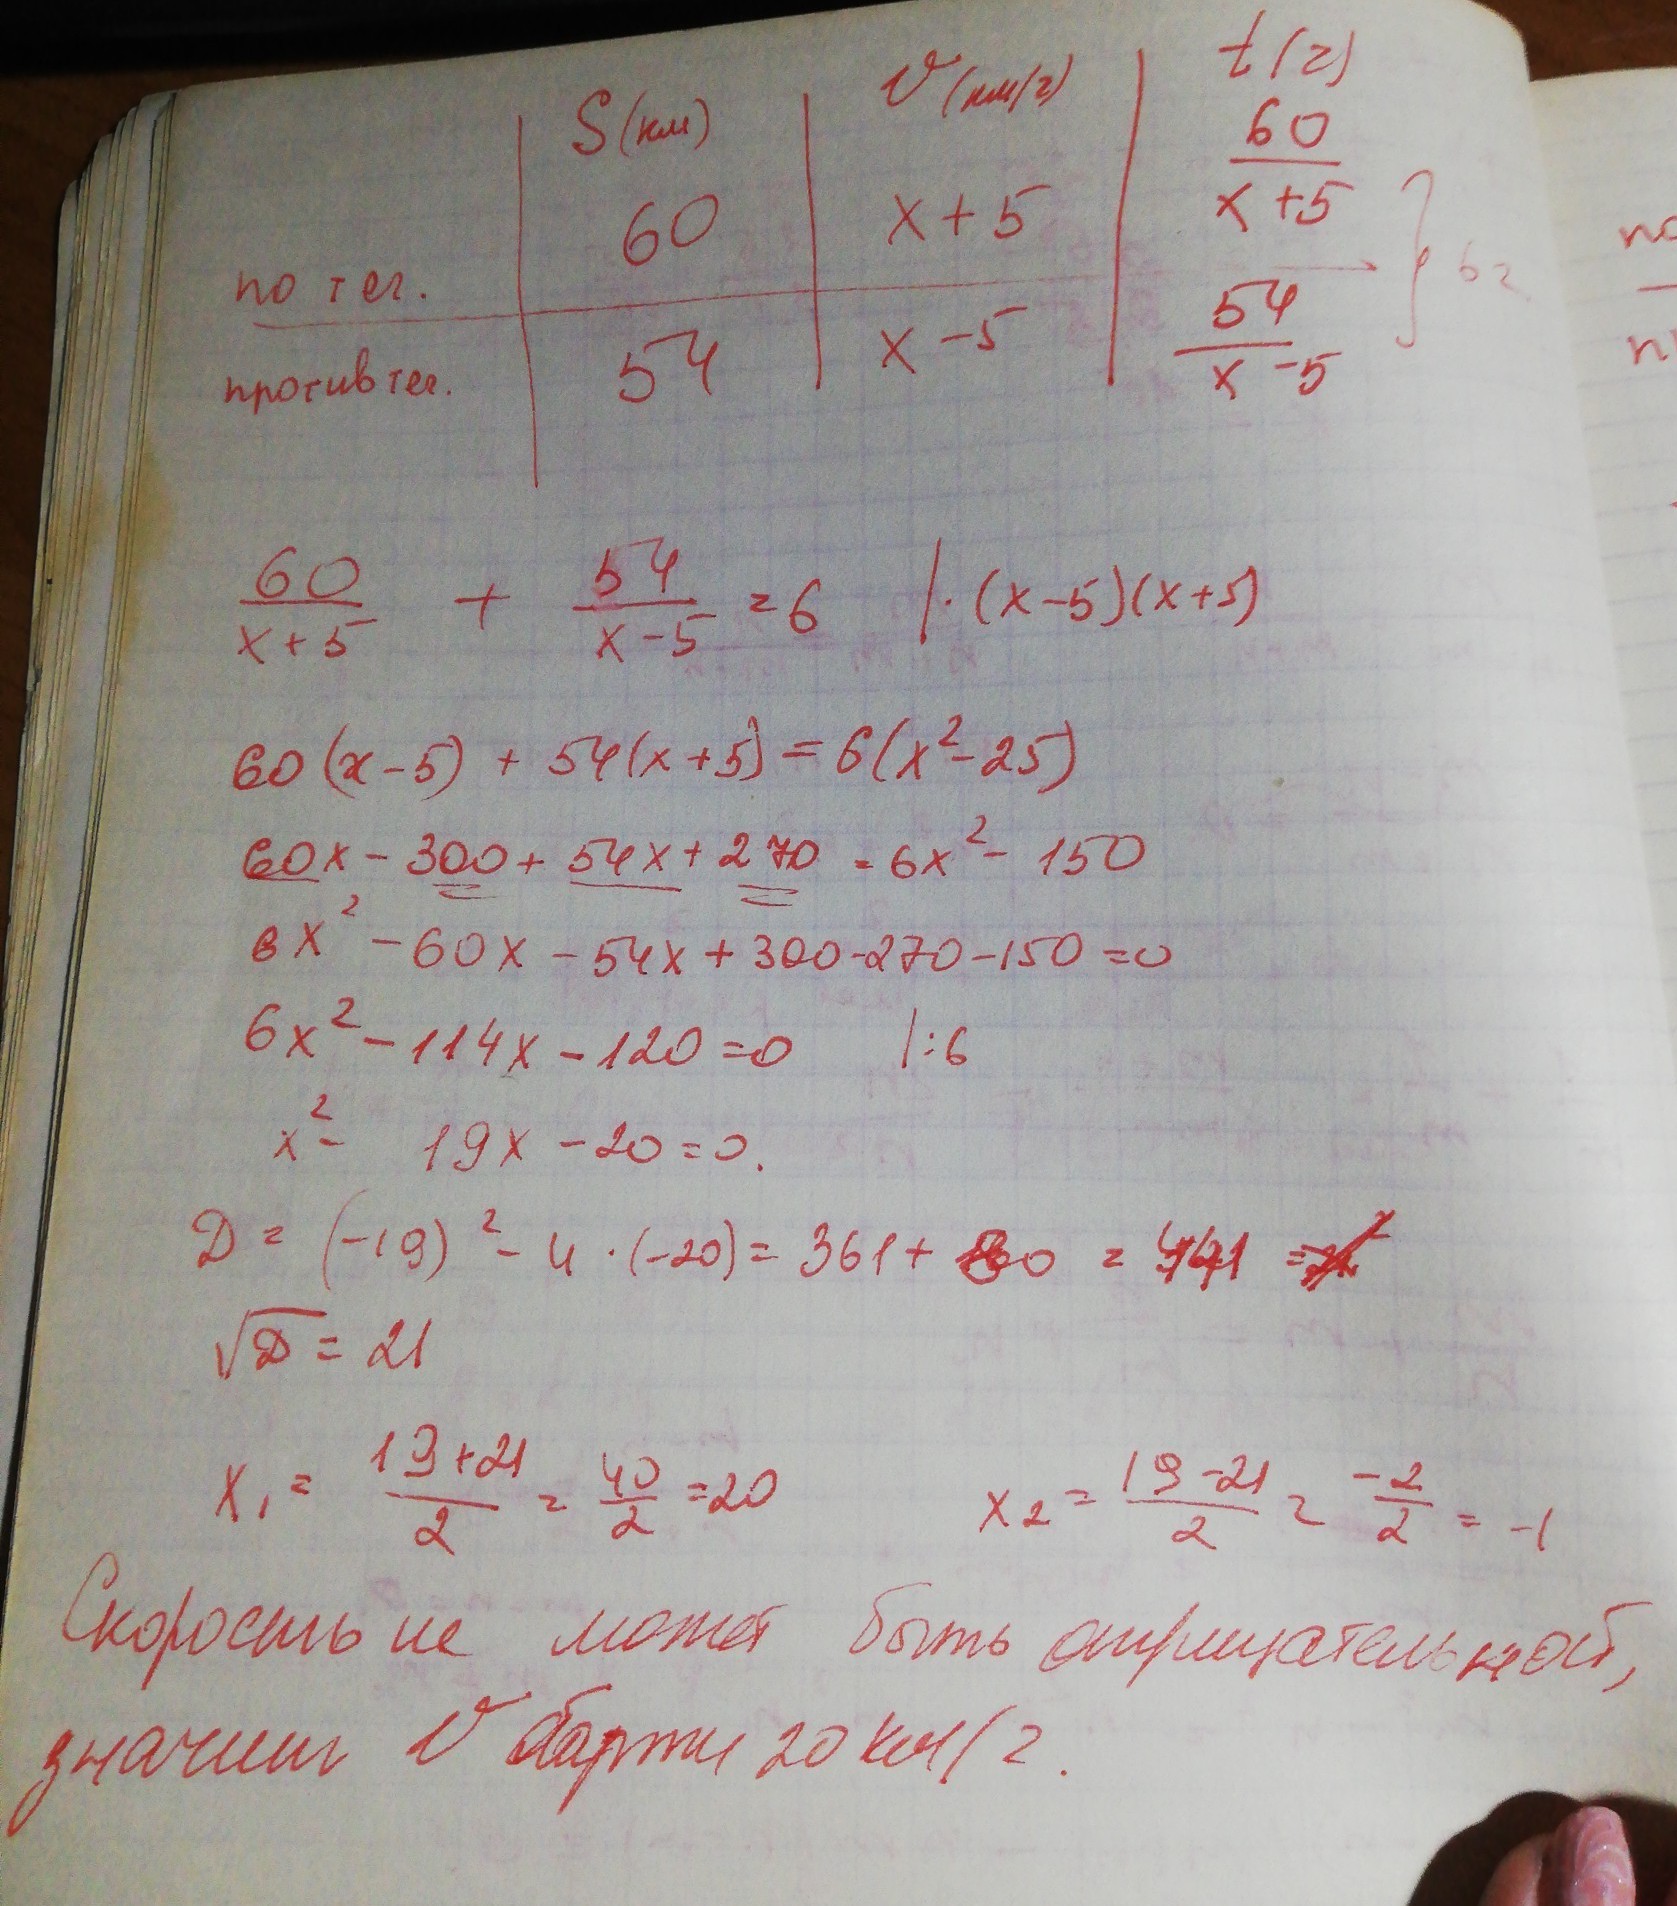 S(км) V(км/г) t(г)
по теч. 60 x+5 60/(x+5)
против теч. 54 x-5 54/(x-5) } 6г
60/(x+5) + 54/(x-5) = 6 |·(x-5)(x+5)
60(x-5) + 54(x+5) = 6(x²-25)
60x - 300 + 54x + 270 = 6x² - 150
6x² - 60x - 54x + 300 - 270 - 150 = 0
6x² - 114x - 120 = 0 |:6
x² - 19x - 20 = 0.
D = (-19)² - 4·(-20) = 361 + 80 = 441
√D = 21
x₁ = (19+21)/2 = 40/2 = 20 x₂ = (19-21)/2 = -2/2 = -1
Скорость не может быть отрицательной,
значит V баржи 20 км/г.
по